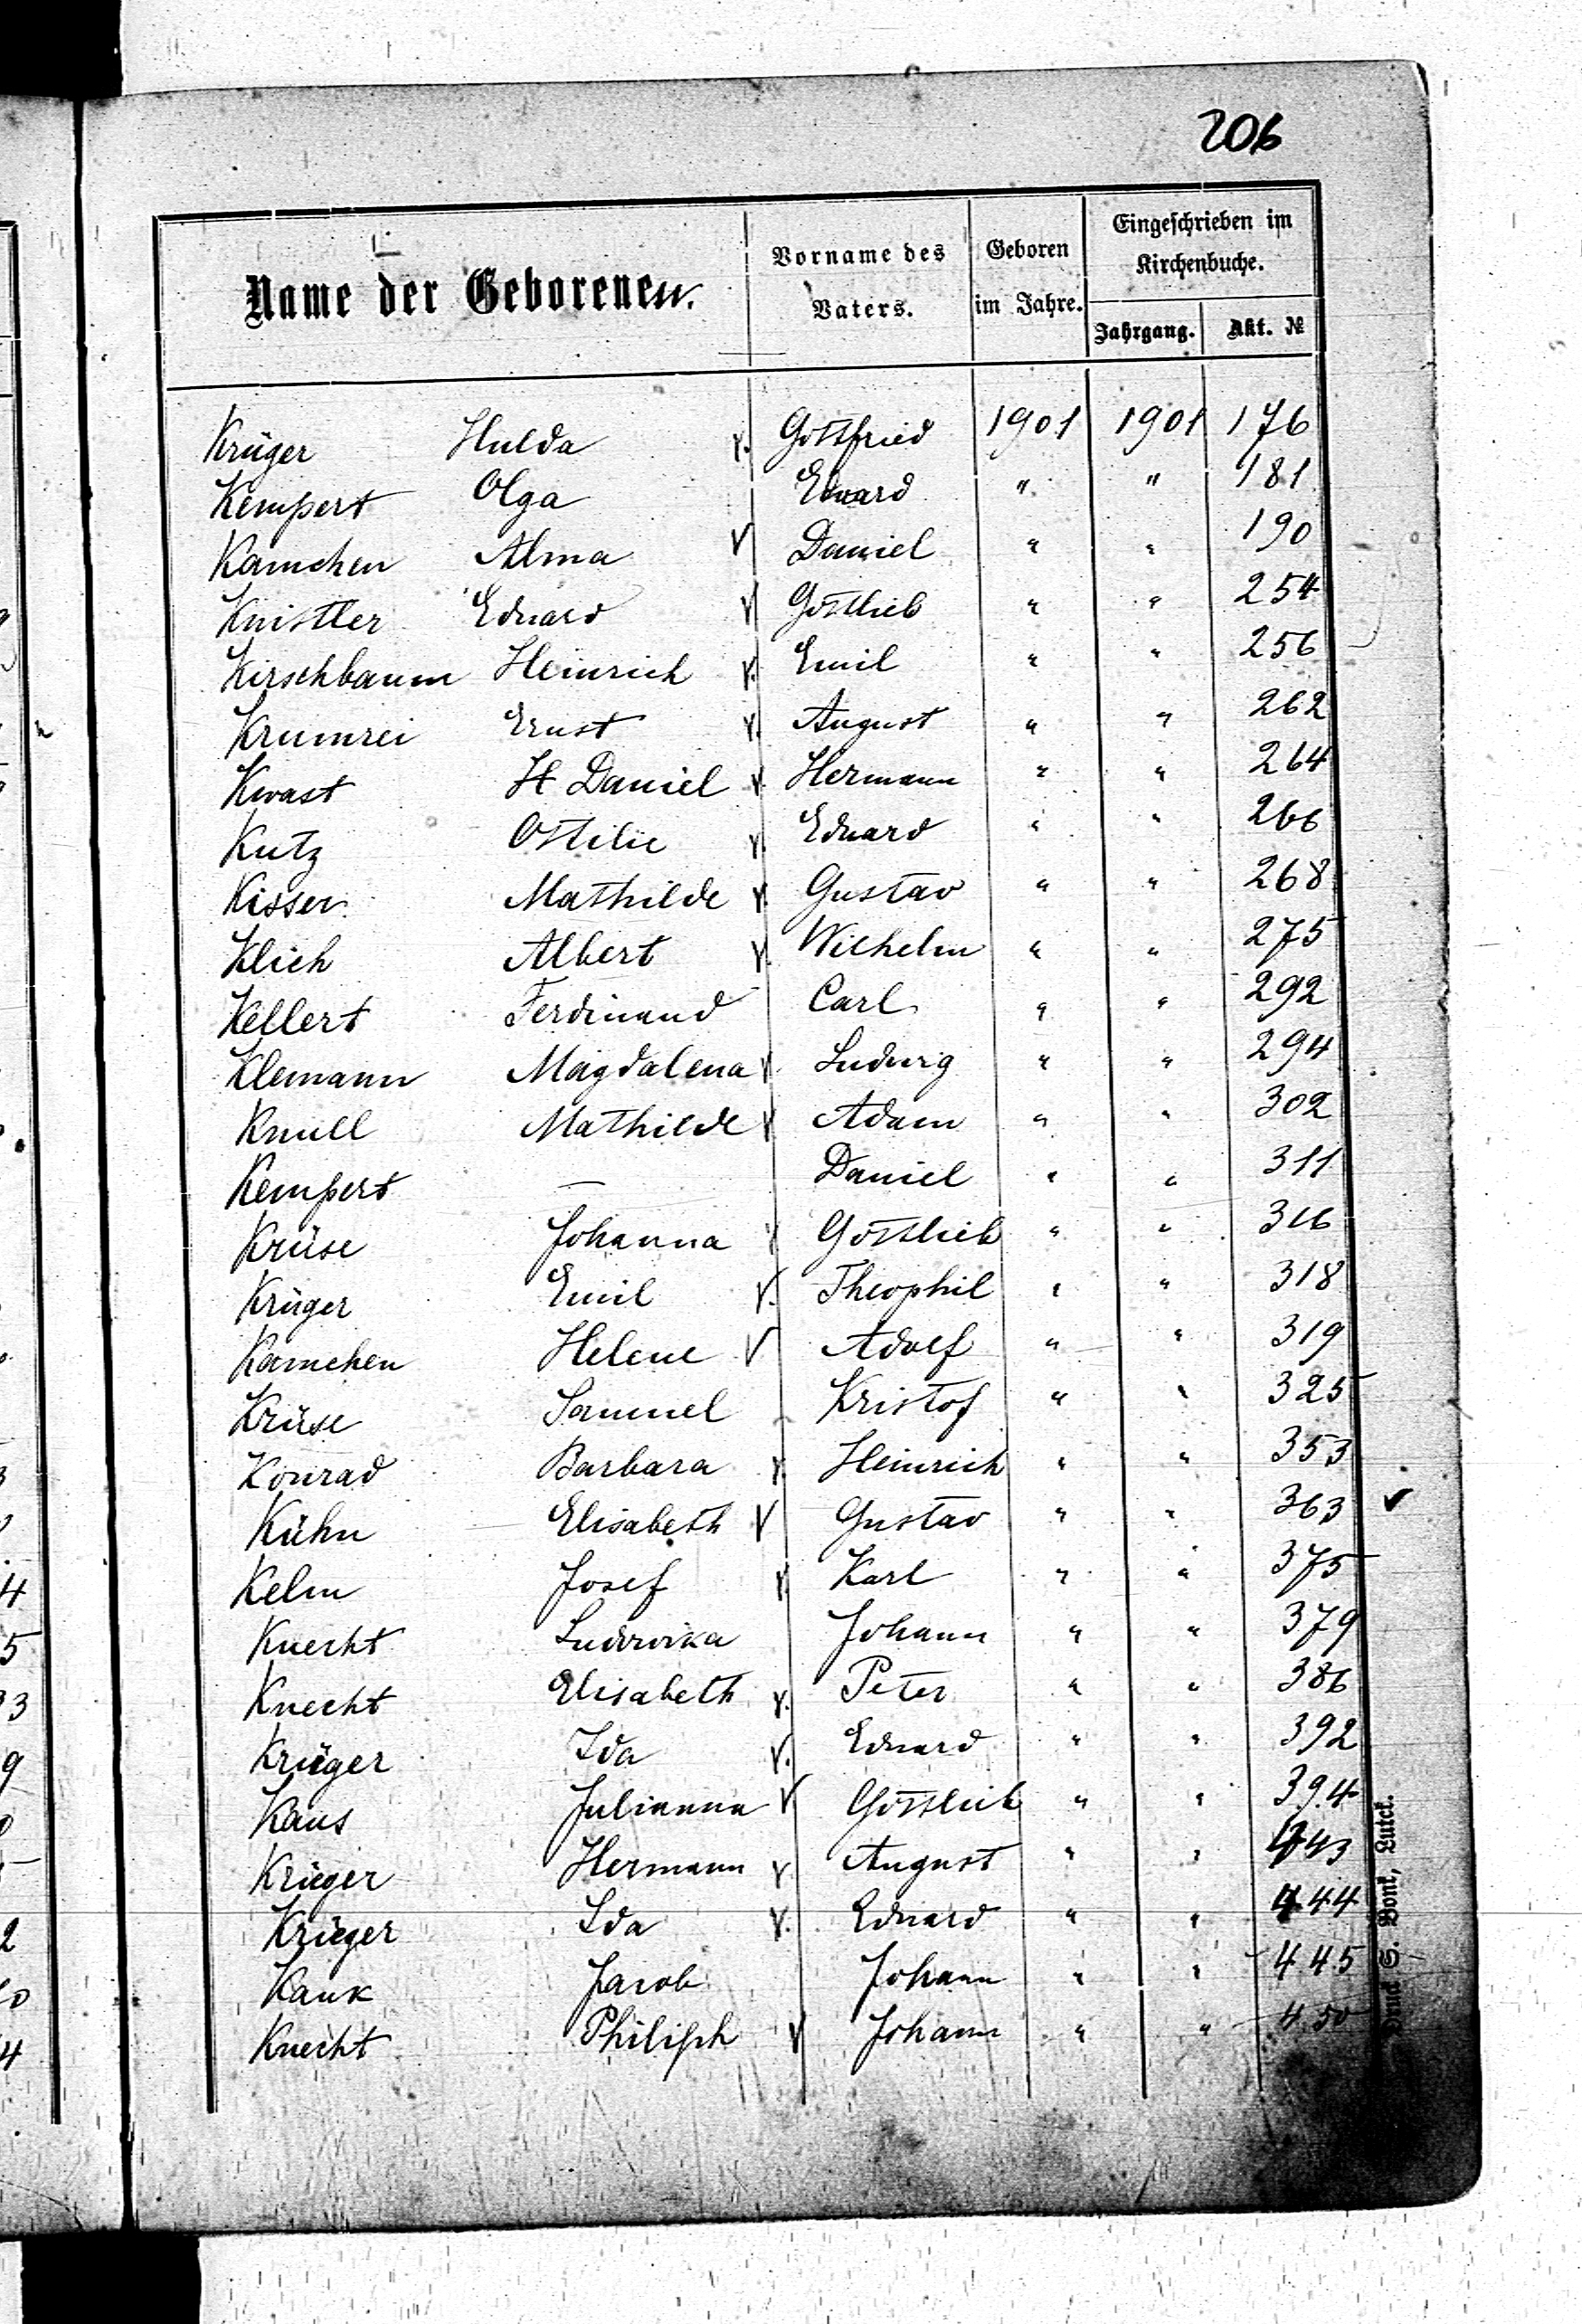 206
Name der Geborenen. Vorname des Vaters. Geboren im Jahre. Eingeschrieben im Kirchenbuche.
Jahrgang. Akt. №
Krüger Hulda v. Gottfried 1901 1901 176
Kempert Olga Eduard " " 181
Kamchen Alma v Daniel " " 190
Knistler Eduard v Gottlieb " " 254
Kirschbaum Heinrich v. Emil " " 256
Krumrei Ernst v. August " " 262
Kwast H Daniel v. Hermann " " 264
Kutz Ottilie v. Eduard " " 266
Kisser Mathilde v. Gustav " " 268
Klich Albert v. Wilhelm " " 275
Kellert Ferdinand Carl " " 292
Klemann Magdalena v. Ludwig " " 294
Knull Mathilde v Adam " " 302
Kempert — Daniel " " 311
Krüse Johanna v Gottlieb " " 316
Krüger Emil v. Theophil " " 318
Kamchen Helene v Adolf " " 319
Krüse Samuel Kristof " " 325
Konrad Barbara v. Heinrich " " 353
Kühn Elisabeth v Gustav " " 363 ✓
Kelm Josef v. Karl " " 375
Knecht Ludovika Johann " " 379
Knecht Elisabeth v. Peter " " 386
Krüger Ida v. Eduard " " 392
Kaus Julianna v Gottlieb " " 394
Krüger Hermann v August " " 443
Krüger Ida v. Eduard " " 444
Kauk Jacob Johann " " 445
Knecht Philiph v Johann " " 450
Druck S. Bonk, Lutck.